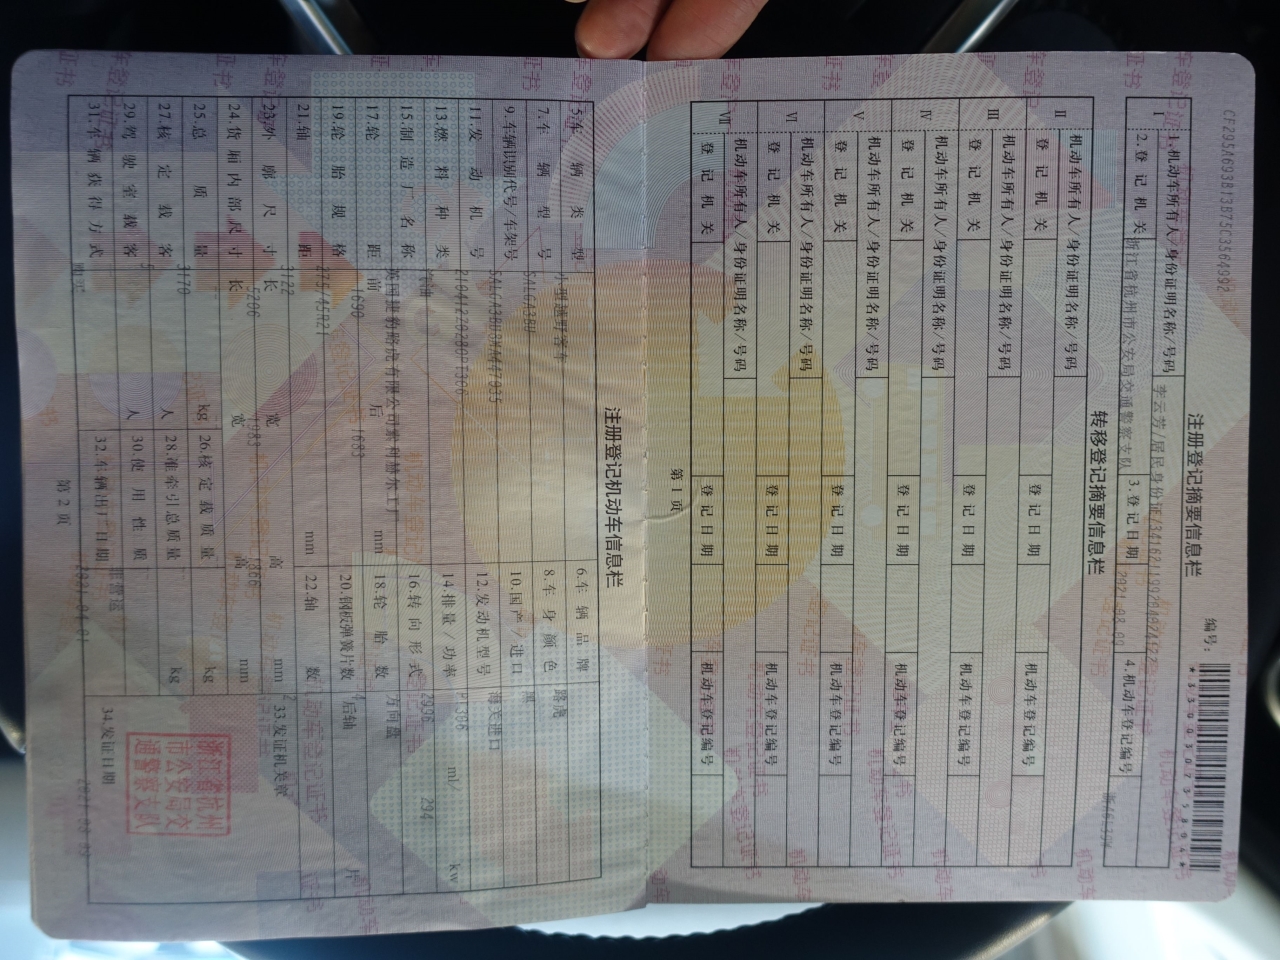 CF295A693B13B75C3564992
注册登记摘要信息栏
编号:
*330030735804*
Ⅰ
1.机动车所有人/身份证明名称/号码
李云芬/居民身份证/
2.登记机关
浙江省杭州市公安局交通警察支队
3.登记日期
4.机动车登记编号
转移登记摘要信息栏
Ⅱ 机动车所有人/身份证明名称/号码
登记机关 登记日期 机动车登记编号
Ⅲ 机动车所有人/身份证明名称/号码
登记机关 登记日期 机动车登记编号
Ⅳ 机动车所有人/身份证明名称/号码
登记机关 登记日期 机动车登记编号
Ⅴ 机动车所有人/身份证明名称/号码
登记机关 登记日期 机动车登记编号
Ⅵ 机动车所有人/身份证明名称/号码
登记机关 登记日期 机动车登记编号
Ⅶ 机动车所有人/身份证明名称/号码
登记机关 登记日期 机动车登记编号
第1页
注册登记机动车信息栏
5.车辆类型 小型越野客车 6.车辆品牌 路虎
7.车辆型号 8.车身颜色 黑
9.车辆识别代号/车架号 10.国产/进口 海关进口
11.发动机号 12.发动机型号 PT306
13.燃料种类 汽油 14.排量/功率 2996 ml/ 294 kw
15.制造厂名称 16.转向形式 方向盘
17.轮距 前 1690 后 1683 mm 18.轮胎数 4
19.轮胎规格 275/45R21 20.钢板弹簧片数 后轴 片
21.轴距 3122 mm 22.轴数 2
23.外廓尺寸 长 5206 宽 1983 高 mm 33.发证机关章
24.货厢内部尺寸 长 宽 高 mm
25.总质量 3170 kg 26.核定载质量 kg
27.核定载客 5 人 28.准牵引总质量 kg
29.驾驶室载客 人 30.使用性质 非营运
31.车辆获得方式 购买 32.车辆出厂日期 2021-04-01 34.发证日期
浙江省杭州
市公安局交
通警察支队
第2页